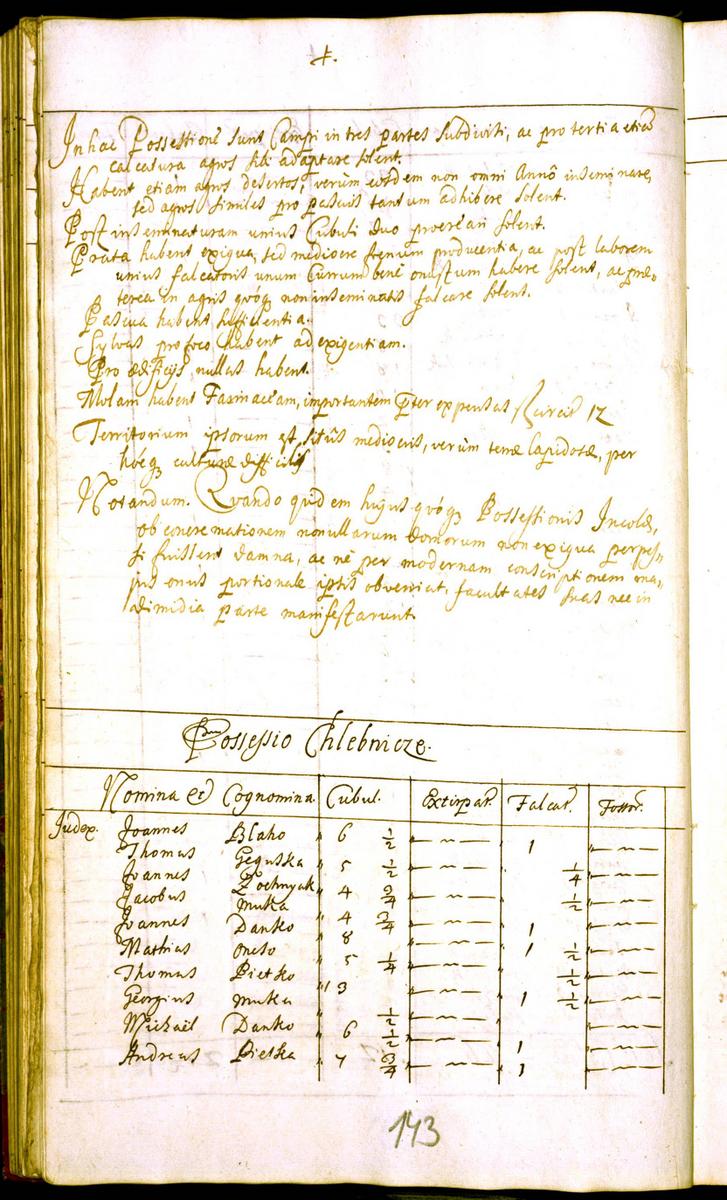 In hac Possessione sunt Campi in tres partes subdiviti, ac pro tertia etiã
calcatura agros sibi adaptare solent.
Habent etiam agros desertos, verùm eosdem non omni Annô inseminare,
sed agros similes pro pascuis tantum adhibere solent.
Post inseminaturam unius Cubuli duo procreari solent.
Prata habent exigua, sed mediocre foenum producentia, ac post laborem
unius falcatoris unum Currum benè onustum habere solent, ac præ-
terea in agris quóq; non inseminatis falcare solent.
Pascua habent sufficientia.
Sylvas pro foco habent ad exigentiam.
Pro ædificijs, nullas habent.
Molam habent Farinaceam, importantem p̄ter expensas circa 12
Territorium ipsorum est sitûs mediocris, verùm terræ lapidosæ, per
hocq; culturæ difficilis
Notandum. Quando quidem hujus quóq; Possessionis Incolæ,
ob concremationem nonullarum domorum non exigua perpes-
si fuissent damna, ac nè per modernam conscriptionem ma-
jus onus portionale ip̄is obveniat, facultates suas nec in
dimidia parte manifestarunt.
Possessio Chlebnicze.
Nomina et Cognomina. Cubul. Extirpat. Falcat. Fossor.
Judex. Joannes Blaho " 6 ½ " — ~ — " 1 " — ~ —
Thomas Geguska " 5 ½ " — ~ — ¼ " — ~ —
Joannes Zochnyak " 4 ¾ " — ~ — ½ " — ~ —
Jacobus Muka " 4 ¾ " — ~ — " 1 " — ~ —
Joannes Danko " 8 " — ~ — " 1 ½ " — ~ —
Mathias " 5 ¼ " — ~ — ½ " — ~ —
Thomas Pietko " 3 " — ~ — " 1 ½ " — ~ —
Georgius Muka ½ " — ~ — " — ~ —
Michaël Danko " 6 ½ " — ~ — 1 " — ~ —
Andreas Pietka " 7 ¾ " — ~ — 1 " — ~ —
143